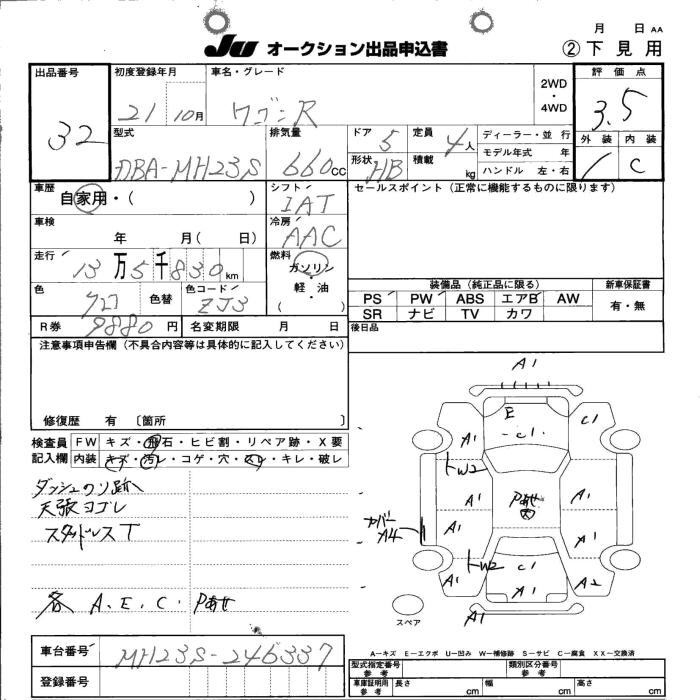 月 日 AA
JU オークション出品申込書 ②下見用
出品番号 32
初度登録年月 21 10月
車名・グレード ワゴンR
2WD・4WD
評価点 3.5
外装 内装 C
型式 DBA-MH23S
排気量 660cc
ドア 5 定員 4人
形状 HB 積載 kg
ディーラー・並行
モデル年式 年
ハンドル 左・右
車歴 自家用・( )
シフト IAT
セールスポイント(正常に機能するものに限ります)
車検 年 月( 日)
冷房 AAC
走行 13万5千830km
燃料 ガソリン・軽油 ( )
色 クロ 色替 色コード ZJ3
装備品(純正品に限る) 新車保証書
PS PW ABS エアB AW 有・無
SR ナビ TV カワ
R券 9880円 名変期限 月 日
後日品
注意事項申告欄(不具合内容等は具体的に記入してください)
修復歴 有 〔箇所 〕
検査員記入欄 FW キズ・飛石・ヒビ割・リペア跡・X要
内装 キズ・汚レ・コゲ・穴・スレ・キレ・破レ
ダッシュのリ跡
天張ヨゴレ
スタッドレスT
各 A.E.C.Pあせ
A1
E C1
C1
A1
トW2
A1 Pあせ A1
カバーA4 A1 A1
トW2 C1
A1 A1 A2
スペア A1
車台番号 MH23S-246337
登録番号
A-キズ E-エクボ U-凹み W-補修跡 S-サビ C-腐食 XX-交換済
型式指定番号 参考 類別区分番号 参考
車庫証明用 参考 長さ cm 幅 cm 高さ cm